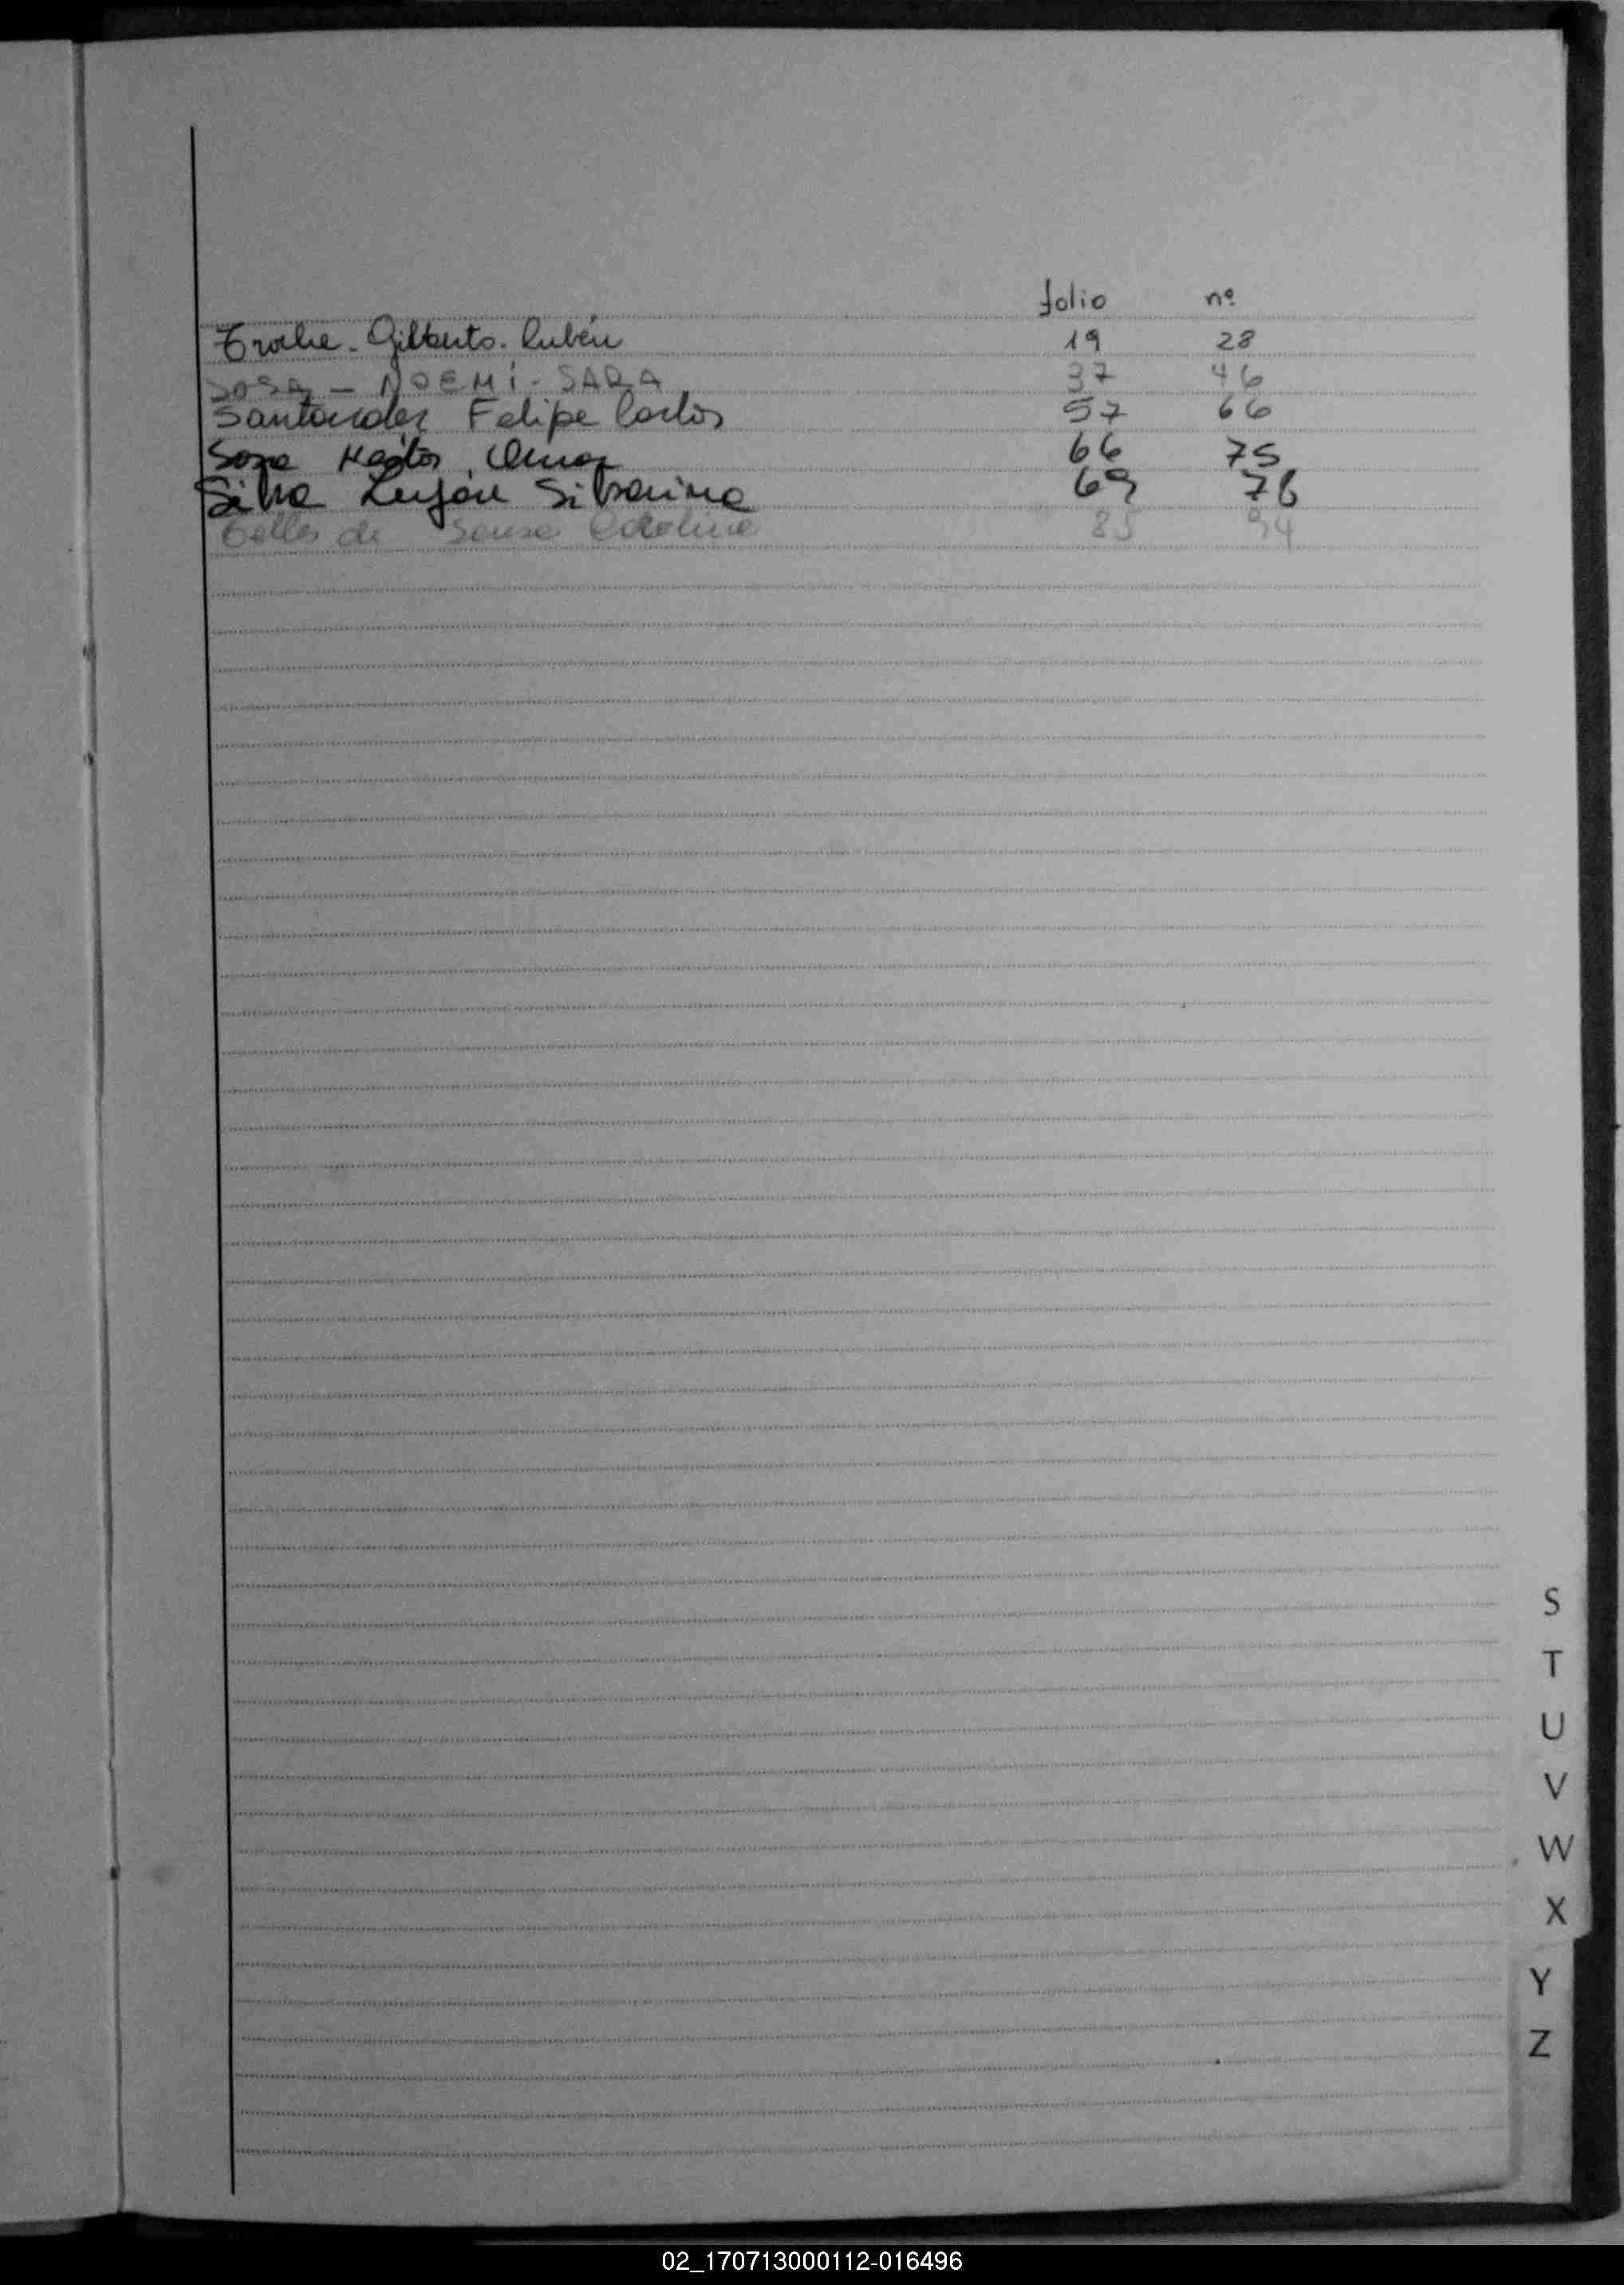 folio nº
Troche - Gilberto - Rubén 19 28
SOSA - NOEMÍ - SARA 37 46
Santander Felipe Carlos 57 66
Sosa Hector Omar 66 75
Silva Luján Silvarina 69 78
Telles de Sousa Carolina 85 94
S
T
U
V
W
X
Y
Z
02_170713000112-016496